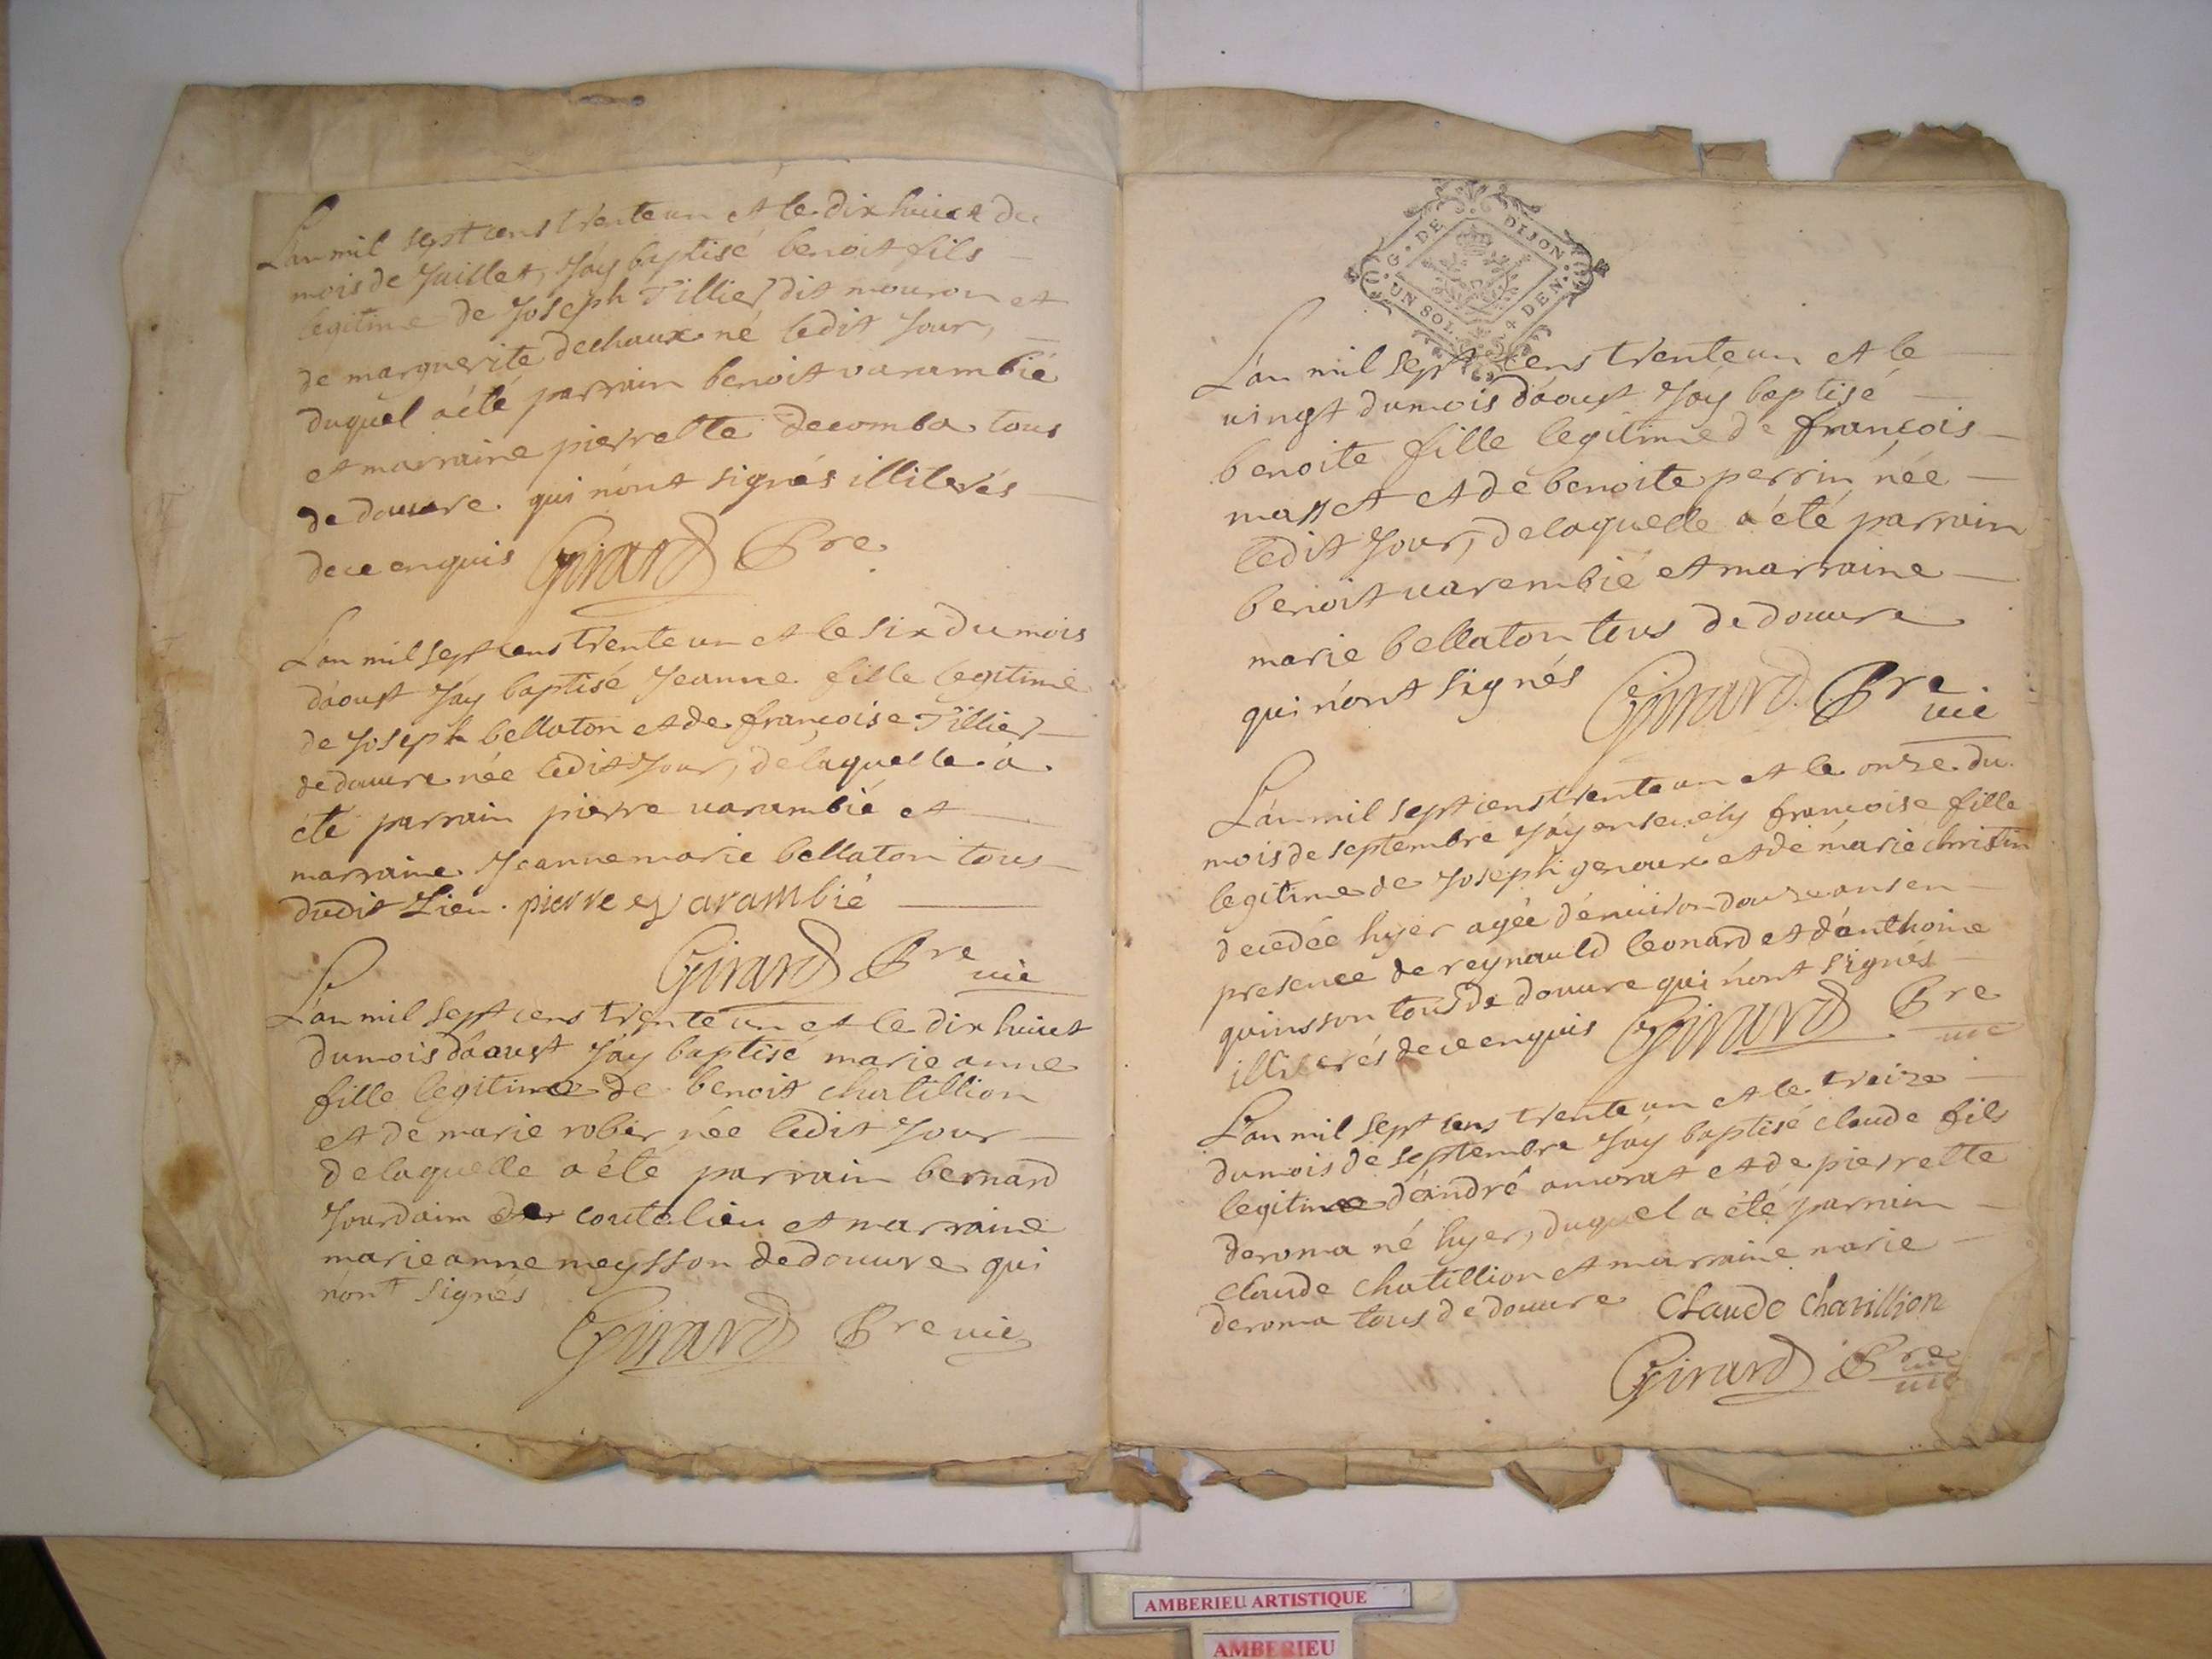 L'an mil sept cens trente un et le dix huict du
mois de Juillet, J'ay baptisé benoit fils
legitime de Joseph Tillier dit mouron et
de marguerite dechaux né ledit Jour,
duquel a été parrain benoit varambié
et marraine pierrette decomba tous
de douvre. qui n'ont signés illiterés
de ce enquis Girard Pre
L'an mil sept cens trente un et le six du mois
d'aoust J'ay baptisé Jeanne fille legitime
de Joseph bellaton et de françoise Tillier
de douvre née ledit Jour, de laquelle a
été parrain pierre varambié et
marraine Jeanne marie bellaton tous
dudit Lieu. pierre varambié
Girard Pre vic
L'an mil sept cens trente un et le dix huict
du mois d'aoust J'ay baptisé marie anne
fille legitime de benoit chatillion
et de marie rober née ledit Jour
de laquelle a été parrain bernard
Jourdain de coutelieu et marraine
marie anne meysson de douvre qui
n'ont signés
Girard Pre vic
G. DE DIJON
UN SOL 4 DEN.
L'an mil sept cens trente un et le
vingt du mois d'aoust J'ay baptisé
benoite fille legitime de françois
masset et de benoite perrin née
ledit Jour, de laquelle a été parrain
benoit varembié et marraine
marie bellaton tous de douvre
qui n'ont signés Girard Pre vic
L'an mil sept cens trente un et le onze du
mois de septembre J'ay ensevely françoise fille
legitime de Joseph genoux et de marie christin
decedée hyer agée d'environ douze ans en
presence de reynauld leonard et d'anthoine
quinsson tous de douvre qui n'ont signés
illiterés de ce enquis Girard Pre vic
L'an mil sept cens trente un et le treize
du mois de septembre J'ay baptisé claude fils
legitime d'andré amorat et de pierrette
deroma né hyer, duquel a été parrain
claude chatillion et marraine marie
deroma tous de douvre Claude Chatillion
Girard Pre vic
AMBERIEU ARTISTIQUE
AMBERIEU